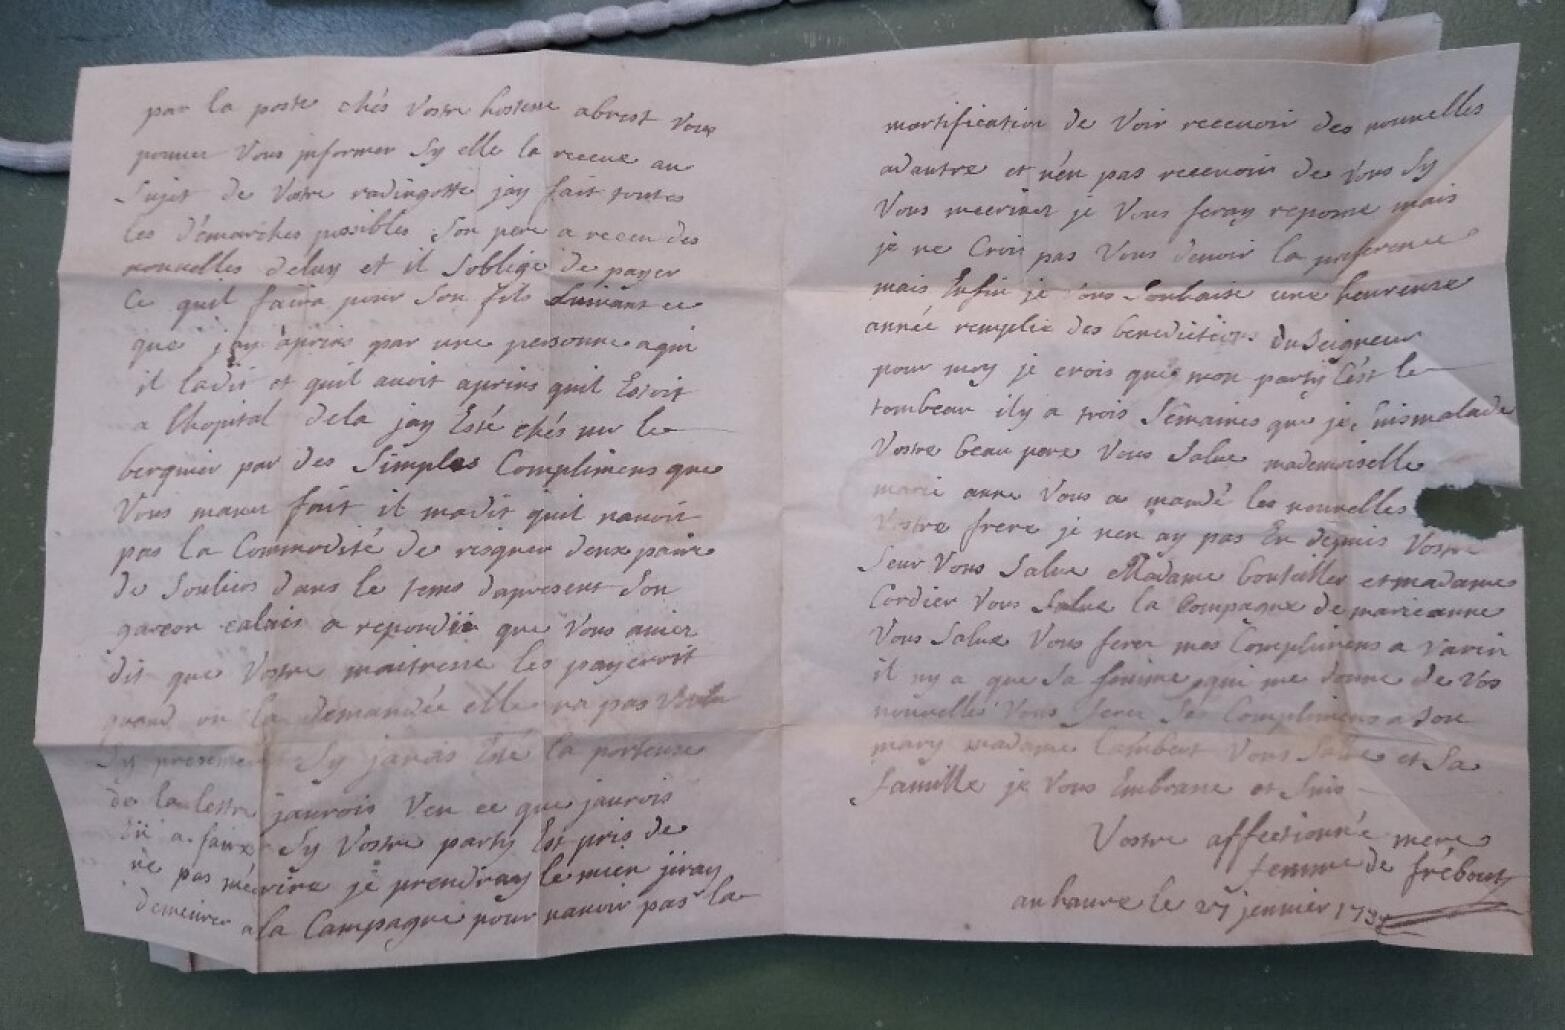 par la poste chés Vostre hostesse abrest vous
pouvez Vous informer Sy elle la receue au
Sujet de Vostre radingotte jay fait toutes
les démarches possibles Son pere a receu des
nouvelles deluy et il Soblige de payer
Ce quil faira pour Son fils Suivant ce
que jay aprins par une personne aqui
il ladit et quil avoit aprins quil Estoit
a lhopital dela jay Esté chés mr le
berquier par des Simples Complimens que
Vous mavez fait il madit quil navoit
pas la Commodité de risquer deux paire
de Souliers dans le tems dapresent Son
garcon calais a repondü que Vous aviez
dit que Vostre maitresse les payeroit
quand on la demandée elle na pas Voulu
Sy presenter Sy javais Esté la porteuse
de la lettre jaurois Veu ce que jaurois
Eü a faire Sy Vostre party Est pris de
ne pas mécrire je prendray le mien jiray
demeurer ala Campagne pour navoir pas la
mortification de Voir recevoir des nouvelles
adautre et nén pas recevoir de Vous Sy
Vous mecrivez je Vous feray reponse mais
je ne Crois pas Vous devoir la preference
mais Enfin je Vous Souhaise une heureuse
année remplie des benedictions du Seigneur
pour moy je crois que mon party Cést le
tombeau ily a trois Semaines que je Suis malade
Vostre beau pere Vous Salue mademoiselle
marie anne Vous a mandé les nouvelles
Vostre frere je nen ay pas Eu depuis Vostre
Seur Vous Salue Madame bouteiller et madame
Cordier Vous Salue la Compagne de marieanne
Vous Salue Vous ferez mes Complimens a Varin
il ny a que Sa femme qui me donne de Vos
nouvelles Vous ferez Ses Complimens a Son
mary madame lambert Vous Salue et Sa
famille je Vous Embrasse et Suis
Vostre affectionnée mere
femme de frébourg
au havre le 27 jenvier 173